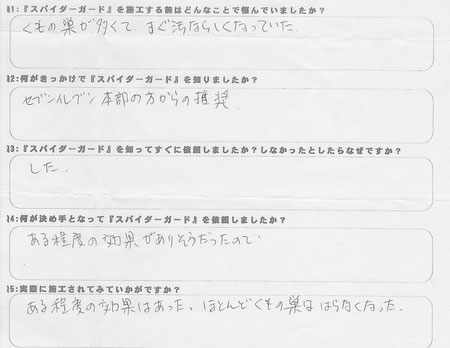 1:『スパイダーガード』を施工する前はどんなことで悩んでいましたか?
くもの巣が多くて、すぐ汚ならしくなっていた.
2:何がきっかけで『スパイダーガード』を知りましたか?
セブンイレブン本部の方からの推奨.
3:『スパイダーガード』を知ってすぐに依頼しましたか?しなかったとしたらなぜですか?
した.
4:何が決め手となって『スパイダーガード』を依頼しましたか?
ある程度の効果がありそうだったので
5:実際に施工されてみていかがですか?
ある程度の効果はあった。ほとんどくもの巣は はらなくなった.